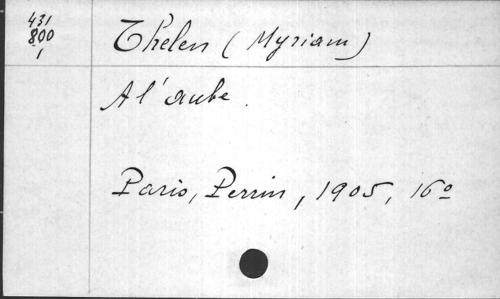 431
800
1
Thelen (Myriam)
A l'aube.
Paris, Perrin, 1905, 16º